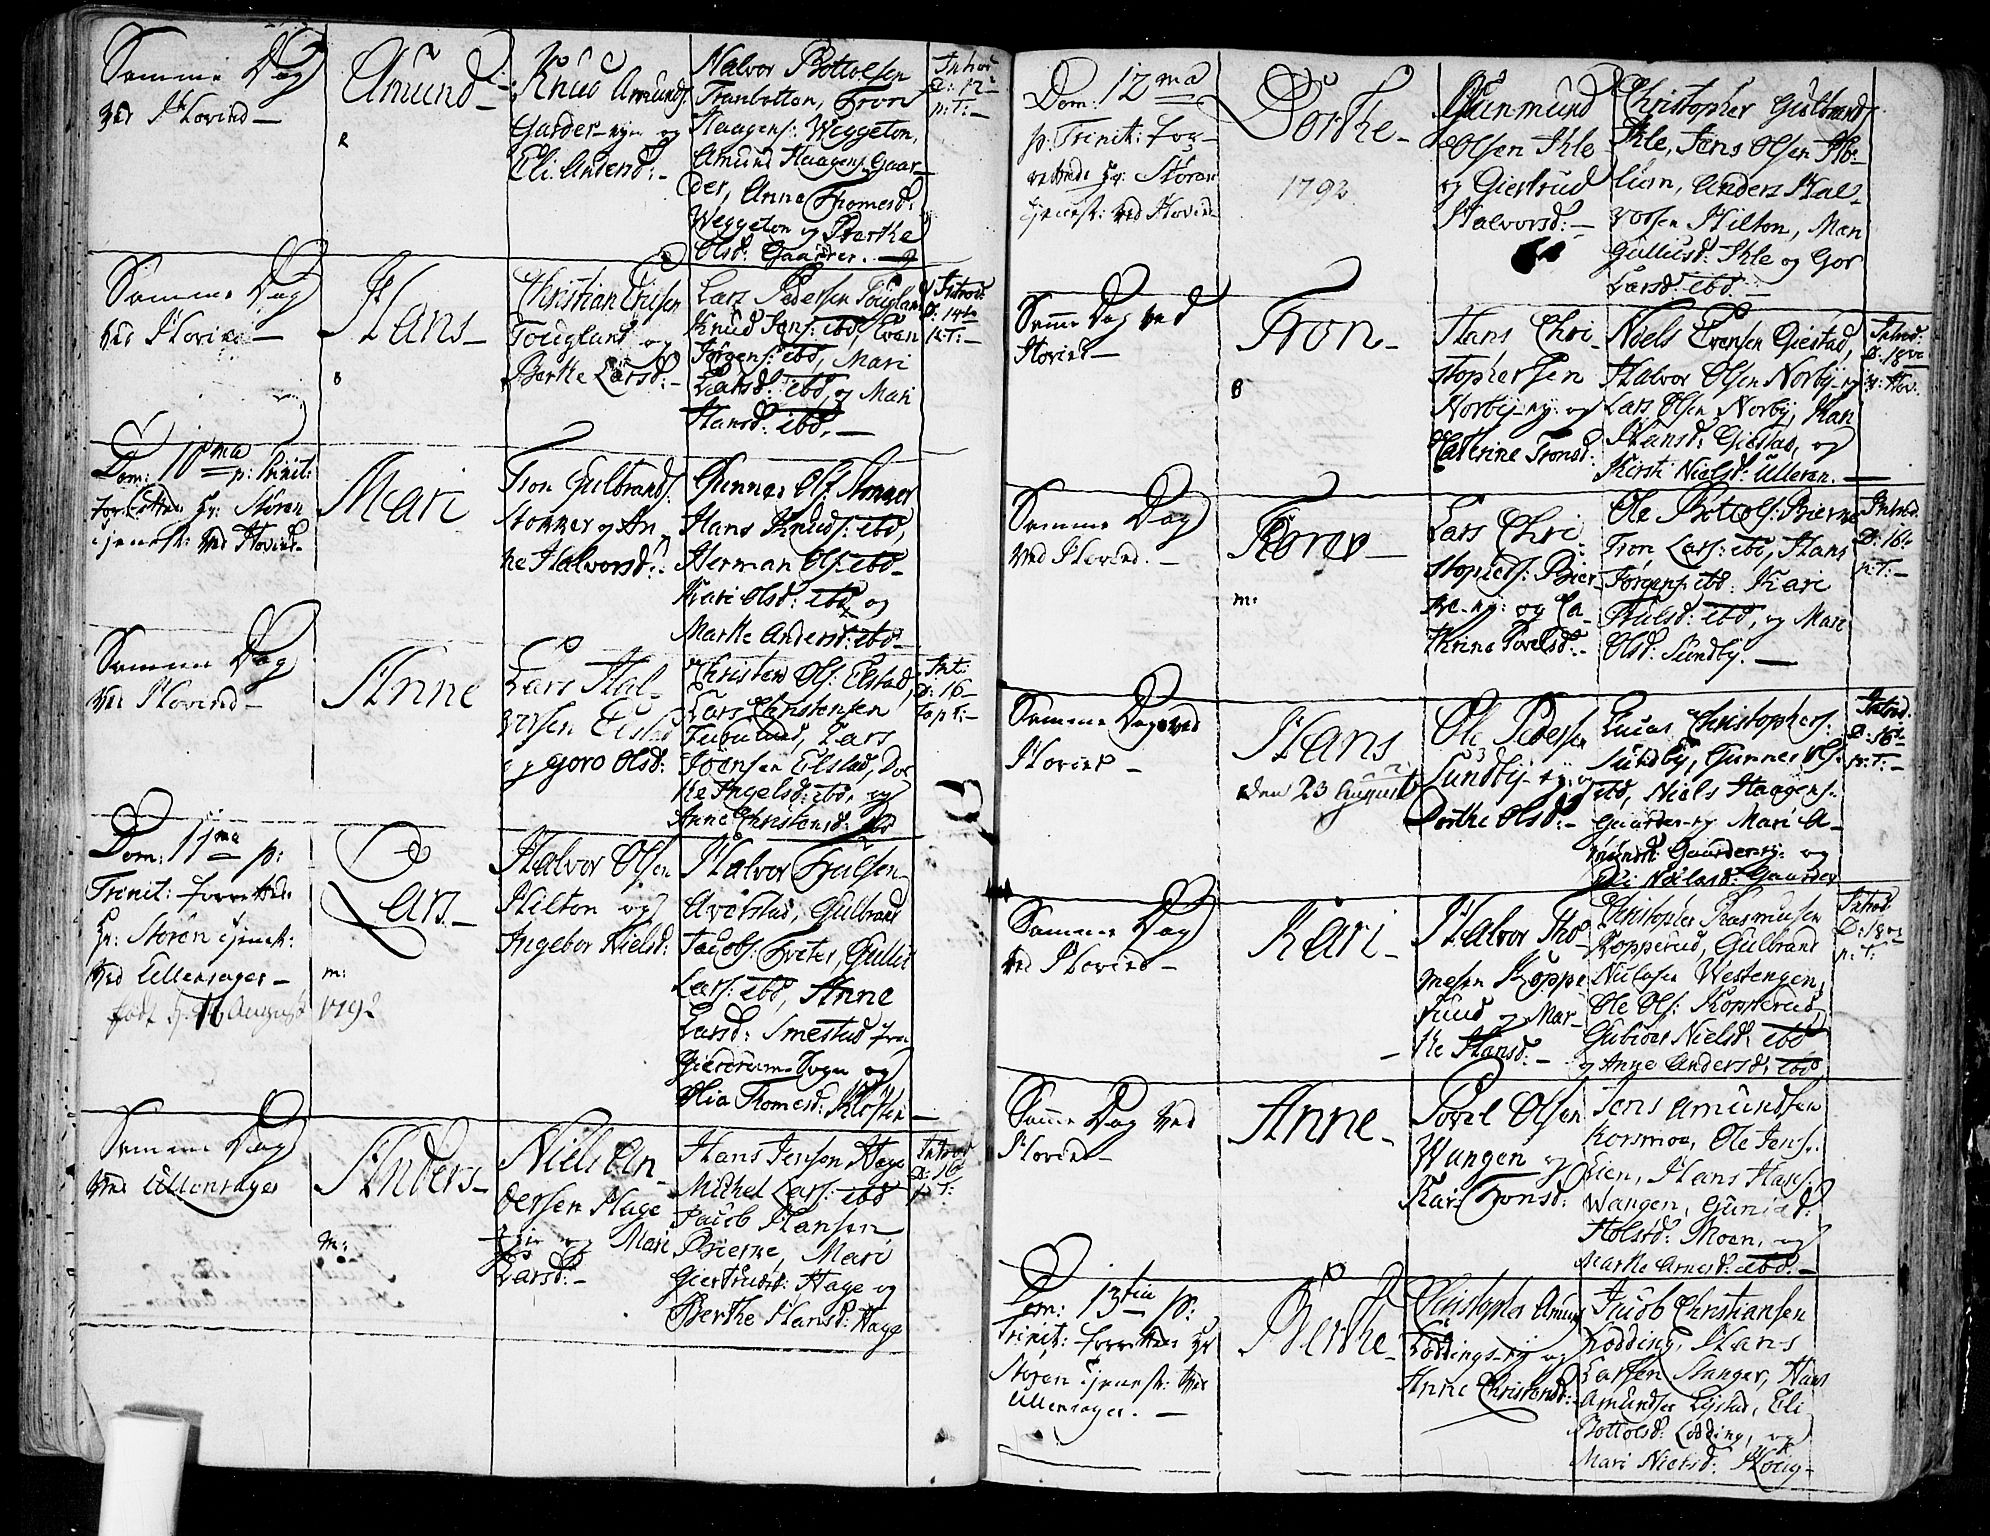 Samme Dag
ved Hovind
Amund
Knud Amunds:
Garder-nye og
Eli Andersd:
Halvor Bottolsen
Tranbotten, Tron
Haagens: Weggeton,
Amund Haagens: Gaar-
der, Anne Thomesd:
Weggeton og Berthe
Olsd: Gaarder.
Introd
D: 12
p: T:
Samme Dag
ved Hovind
Hans
Christian
Touglund og
Berthe Larsd:
Lars Pedersen Touglund
Knud Jens: ibd, Evan
Jörgens: ibd, Mari
Larsd: ibd, og Mari
Hansd: ibd,
Introd:
D: 14de
p: T:
Dom: 10ma p: Trinit:
forrettede Hr: Stören
tjenest: ved Hovind
Mari
Tron Gulbrands:
Stokker og An-
ne Halvorsd:
Gunner Ols: Stokker
Hans Knuds: ibd,
Herman Ols: ibd
Kari Olsd: ibd og
Marthe Andersd: ibd
Samme Dag
ved Hovind
Anne
Lars Hal-
vorsen Elstad
og Goro Olsd:
Christen Ols: Elstad,
Lars Christensen
Lars
Joensen Elstad, Dor
the Ingelsd: ibd, og
Anne Christensd: ibd
Int:
D: 16
to p T:
Dom: 11ma p:
Trinit: forrettede
Hr: Stören tjenest:
ved Ullensager
född d. 16 August
Lars
m:
1792
Halvor Olsen
Hilton og
Ingebor Nielsd:
Halvor Truls̄en
Averstad, Gulbrand
Jacobs: Tveter, Gullic
Lars: ibd, Anne
Larsd: Smestad fra
Gierdrums Sogn og
Olia Thomesd: Kloften
Samme Dag
ved Ullensager
Anders
m:
Niels An
dersen Hage
og Mari
Larsd:
Hans Jenson Hage
Michel Lars: ibd
Jacob Hansen
Bierke, Mari
Giertrudsd: Hage og
Berthe Hansd: Hage
Introd
D: 16
p: T:
Dom: 12ma
p: Trinit: For-
rettede Hr: Stören
tjenest: ved Hovind
Dorthe
1792
Gunmund
Olsen Ihle
og Giertrud
Halvorsd:
Christopher Gulbrands:
Ihle, Jens Olsen Ho-
lum, Anders Hal-
vorsen Hilton, Mari
Gullusd: Ihle og Gor
Larsd: ibd
Samme Dag ved
Hovind
Tron
Hans Chri-
stophersen
Norby-ny: og
Catherine Tronsd:
Niels Evensen Giestad,
Halvor Olsen Norby-ny
Lars Olsen Norby, Kari
Hansd: Giestad, og
Kirsti Nielsd: Ulleren.
Introd:
D: 18
p: Hov:
Samme Dag
ved Hovind.
m:
Lars Chri-
stophers: Bier-
ke-ny: og Ca-
thrine Povelsd:
Ole Bottols: Bierke
Tron Lars: ibd, Hans
Jörgens: ibd: Kari
Trulsd: ibd, og Mari
Olsd: Sundby.
Introd
D: 16de
p: T:
Samme Dag ved
Hovind
Hans
den 23 August
Ole Pedersen
Sundby-ny: og
Dorthe Olsd:
Lucas Christophers:
Sundby, Gunner Ols:
ibd, Niels Haagens:
Gaarder-ny Mari A-
mundsd: Gaarder-ny: og
Eli Nielsd: Gaarder
Introd:
D: 16de
p: T:
Samme Dag
ved Hovind
Kari
Halvor Tho-
mesen Koppe
ruud og Mar-
the Hansd:
Christopher Rasmusen
Kopperud, Gulbrand
Niclasen Westengen,
Ole Ols: Kopperud,
Nielsd: ibd
og Anne Andersd: ibd
Introd
D: 18
p: T:
Samme Dag ved
Hovind
Anne
Povel Olsen
Wangen og
Kari Tronsd:
Jens Amundsen
Korsmoe, Ole Jens:
Lien, Hans Hans:
Wangen,
Holsd: Moen, og
Marthe Arnesd: ibd.
Dom: 13tia p:
Trinit: forrettede Hr
Stören tjenest: ved
Ullensager.
Berthe
Christopher Amunds
Lödding-ny og
Anne Christensd:
Jacob Christiansen
Lodding, Hans
Larssen Stanger, Hans
Amundsen Lystad, Eli
Bottolsd: Lödding, og
Mari Nielsd: Houg